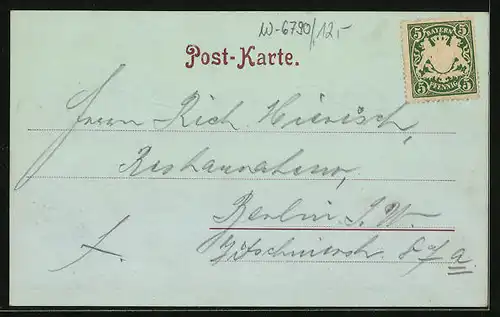 W-6790/12,-
Post-Karte.
5 BAYERN 5
5 PFENNIG 5
Herrn Rich. Hienisch,
Restaurateur,
Berlin S. W.
f. Gitschinerstr. 87 a